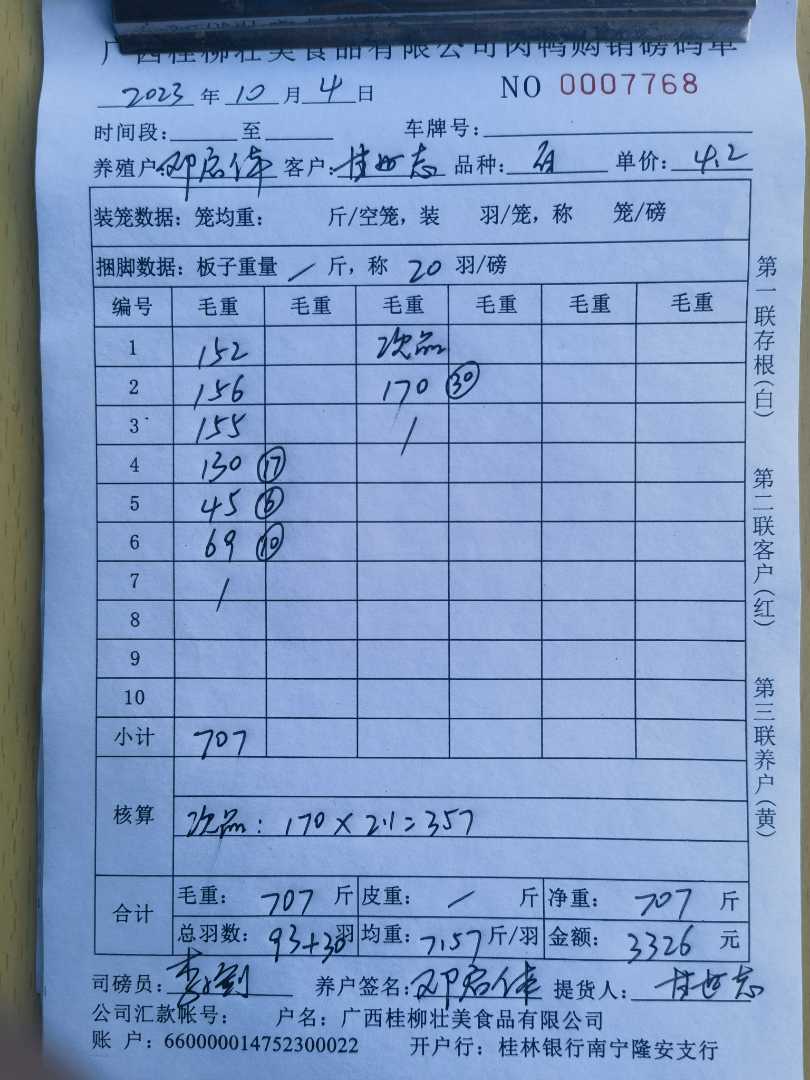 广西桂柳壮美食品有限公司肉鸭购销磅码单
2023 年 10 月 4 日 NO 0007768
时间段: 至 车牌号:
养殖户: 邓启伟 客户: 甘世志 品种: 单价: 4.2
装笼数据: 笼均重: 斤/空笼, 装 羽/笼, 称 笼/磅
捆脚数据: 板子重量 / 斤, 称 20 羽/磅
编号 毛重 毛重 毛重 毛重 毛重 毛重
1 152 次品
2 156 170 ㉚
3 155 /
4 130 ⑰
5 45 ⑥
6 69 ⑩
7 /
8
9
10
小计 707
核算
次品: 170 × 2.1 = 357
合计
毛重: 707 斤 皮重: / 斤 净重: 707 斤
总羽数: 93+30 羽 均重: 7.57 斤/羽 金额: 3326 元
司磅员: 养户签名: 邓启伟 提货人: 甘世志
公司汇款帐号: 户名: 广西桂柳壮美食品有限公司
账 户: 660000014752300022 开户行: 桂林银行南宁隆安支行
第一联存根(白)
第二联客户(红)
第三联养户(黄)